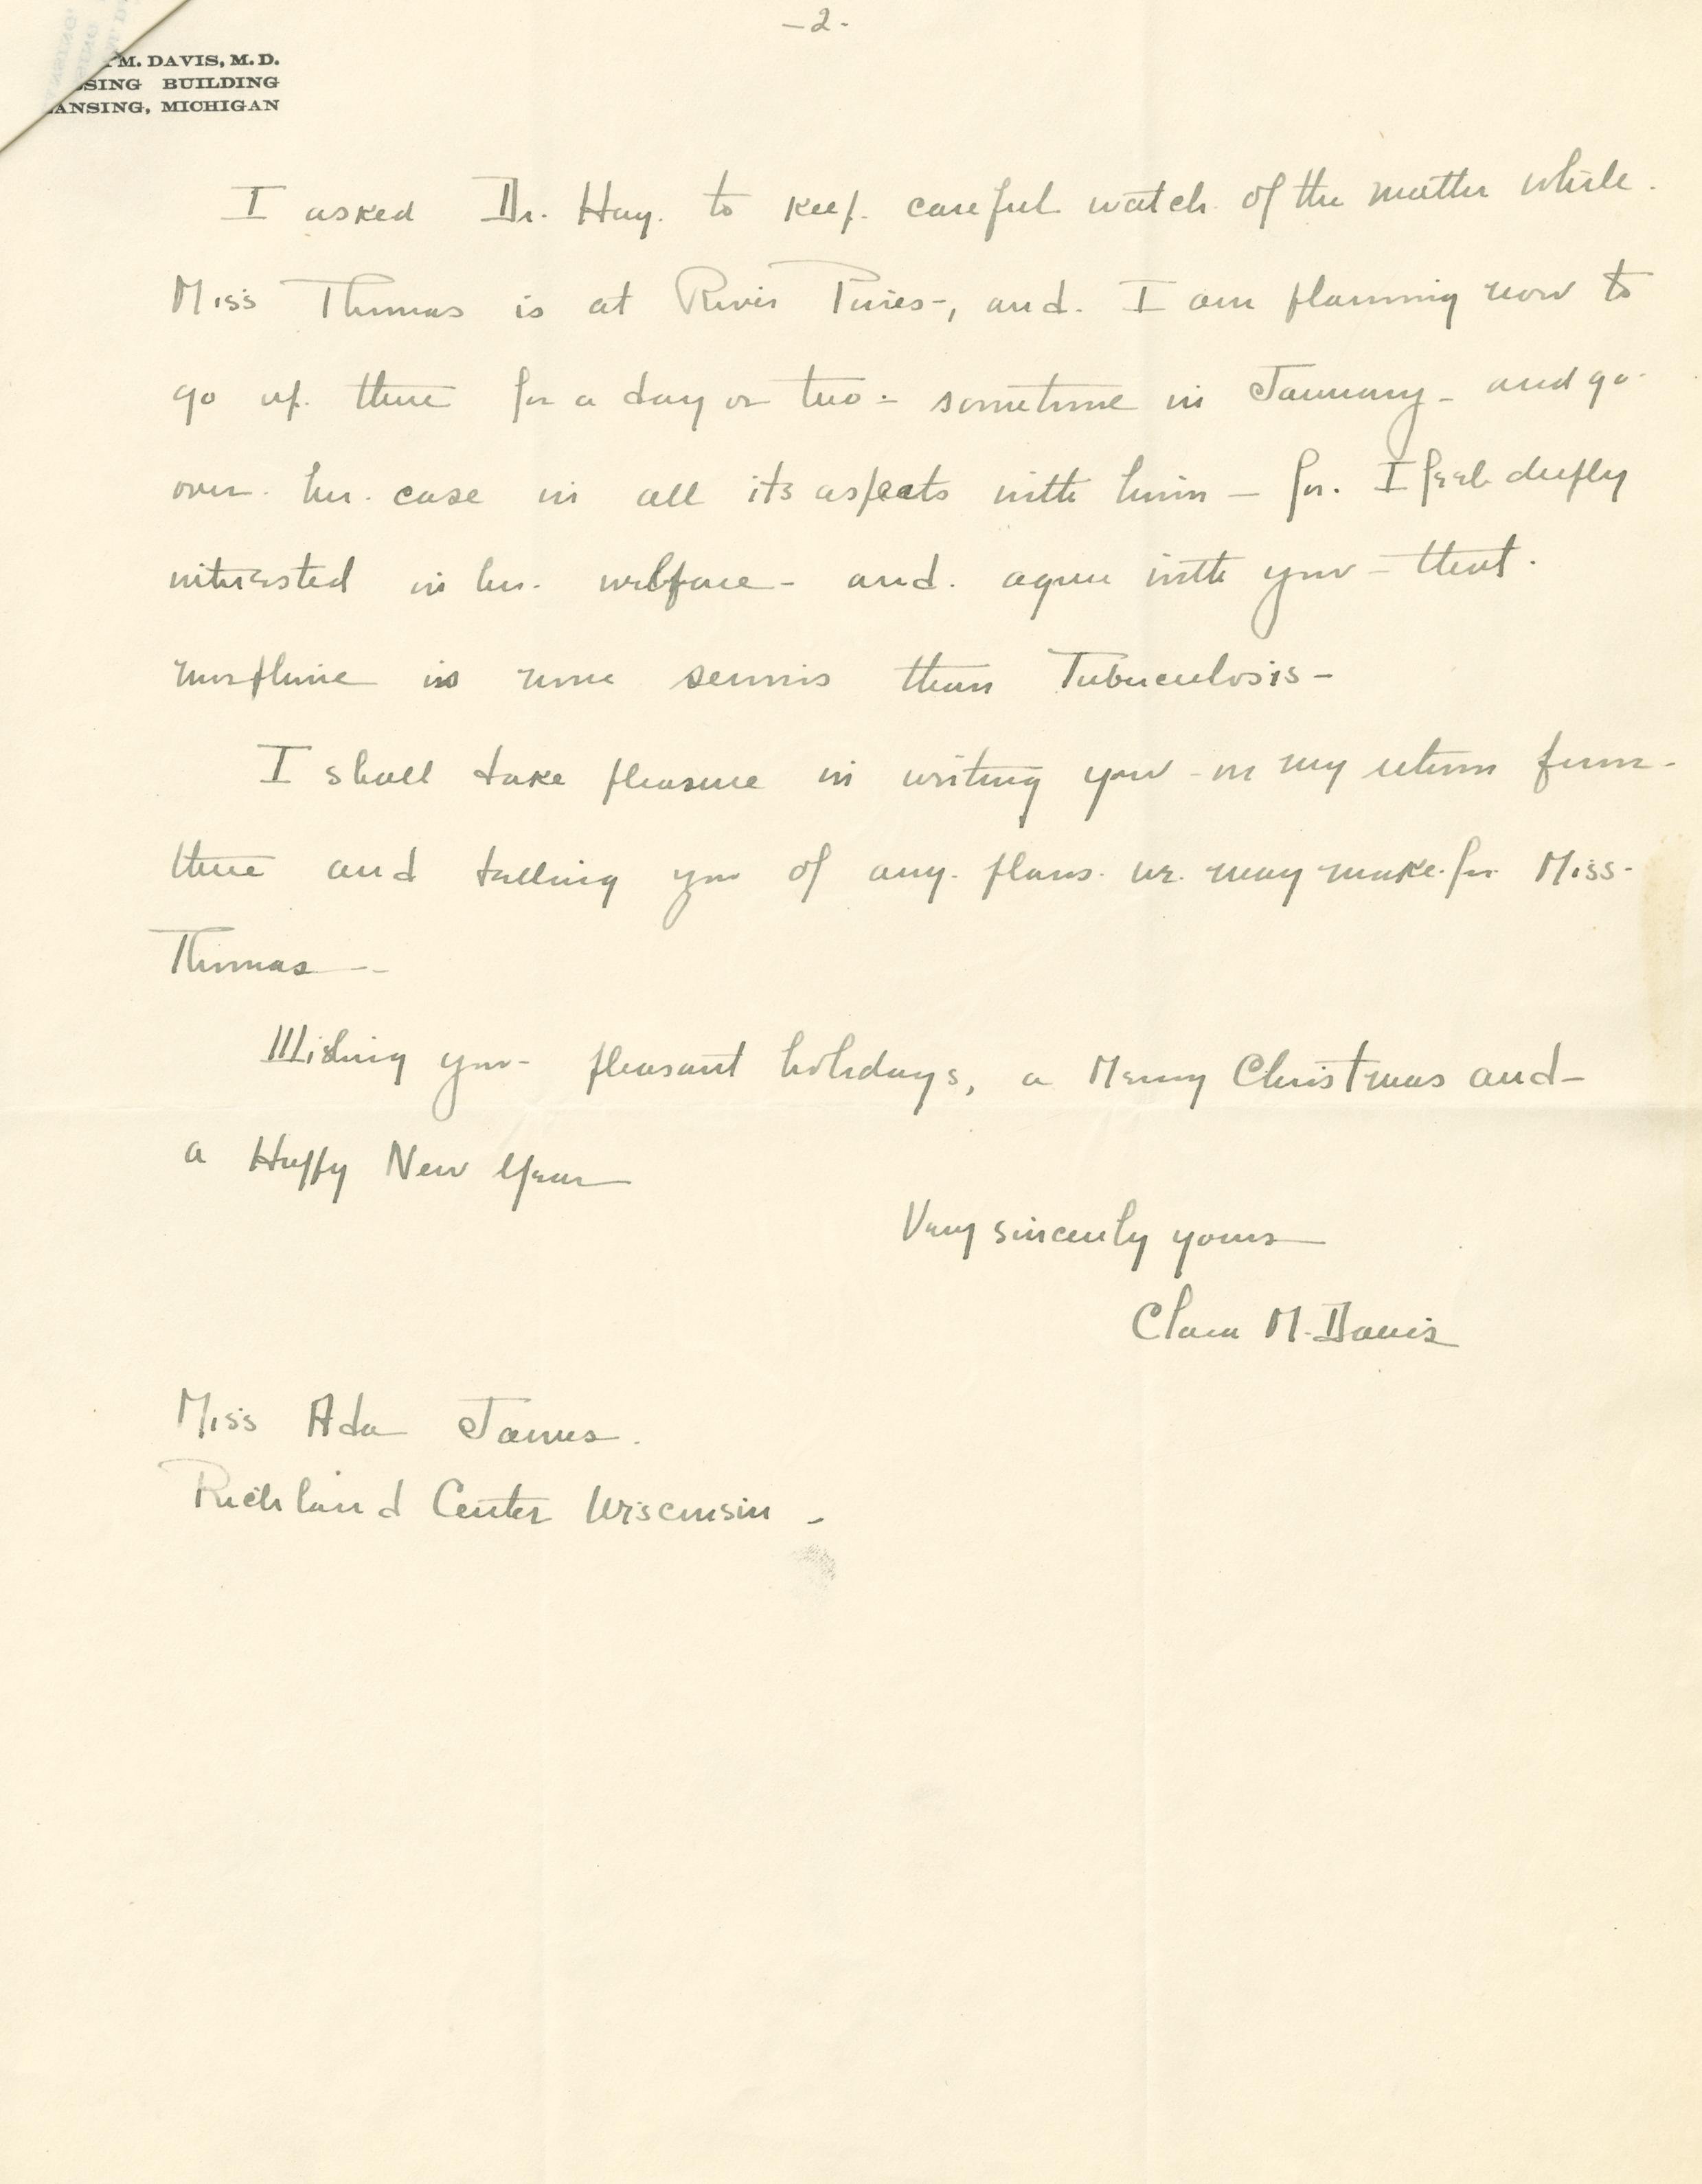 -2-
M. DAVIS, M.D.
SING BUILDING
ANSING, MICHIGAN
I asked Dr. Hay. to keep. careful watch. of the matter while.
Miss Thomas is at River Pines-, and. I am planning now to
go up. there for a day or two - sometime in January - and go
over. her. case in all its aspects with him - for. I feel deeply
interested in her. welfare - and. agree with you - that.
morphine is more serious than Tuberculosis -
I shall take pleasure in writing you - on my return from -
there and telling you of any. plans. we. may make. for Miss.
Thomas --
Wishing you - pleasant holidays, a Merry Christmas and -
a Happy New Year
Very sincerely yours
Clara M. Davis
Miss Ada James.
Richland Center Wisconsin -